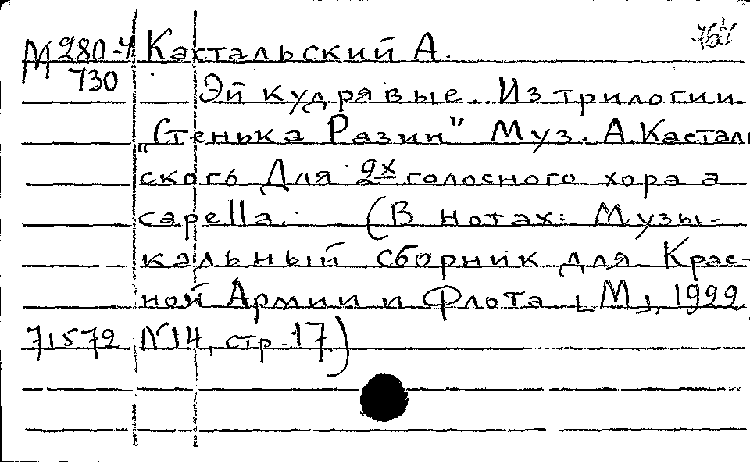 М 280-4 Кастальский А.
730
Эй кудрявые. Из трилогии
"Стенька Разин" Муз. А. Касталь
ского Для 2х голосного хора а
capella. (В нотах: Музы-
кальный сборник для Крас-
ной Армии и Флота [М], 1922
71572 N14, стр. 17)